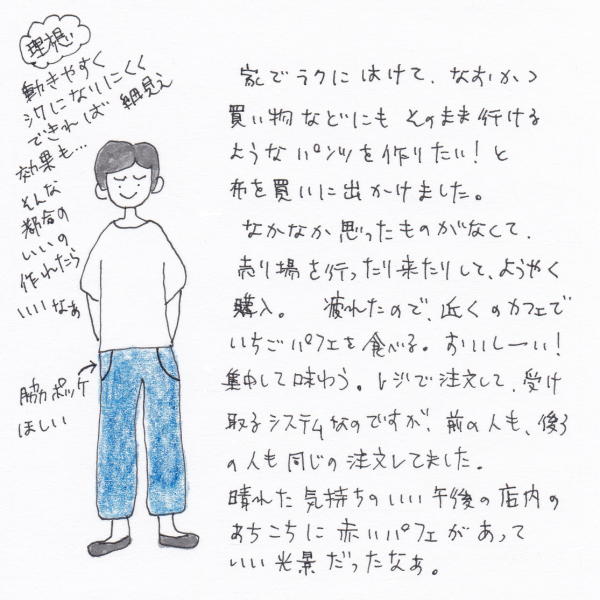 理想
動きやすく
シワになりにくく
できれば 細見え
効果も…
そんな
都合の
いいの
作れたら
いいなぁ
脇ポッケ
ほしい
家でラクにはけて、なおかつ
買い物などにも そのまま行ける
ようなパンツを作りたい！と
布を買いに出かけました。
なかなか思ったものがなくて、
売り場を行ったり来たりして、ようやく
購入。 疲れたので、近くのカフェで
いちごパフェを食べる。おいしーい！
集中して味わう。レジで注文して、受け
取るシステムなのですが、前の人も、後ろ
の人も同じの注文してました。
晴れた気持ちのいい午後の店内の
あちこちに赤いパフェがあって
いい光景だったなぁ。